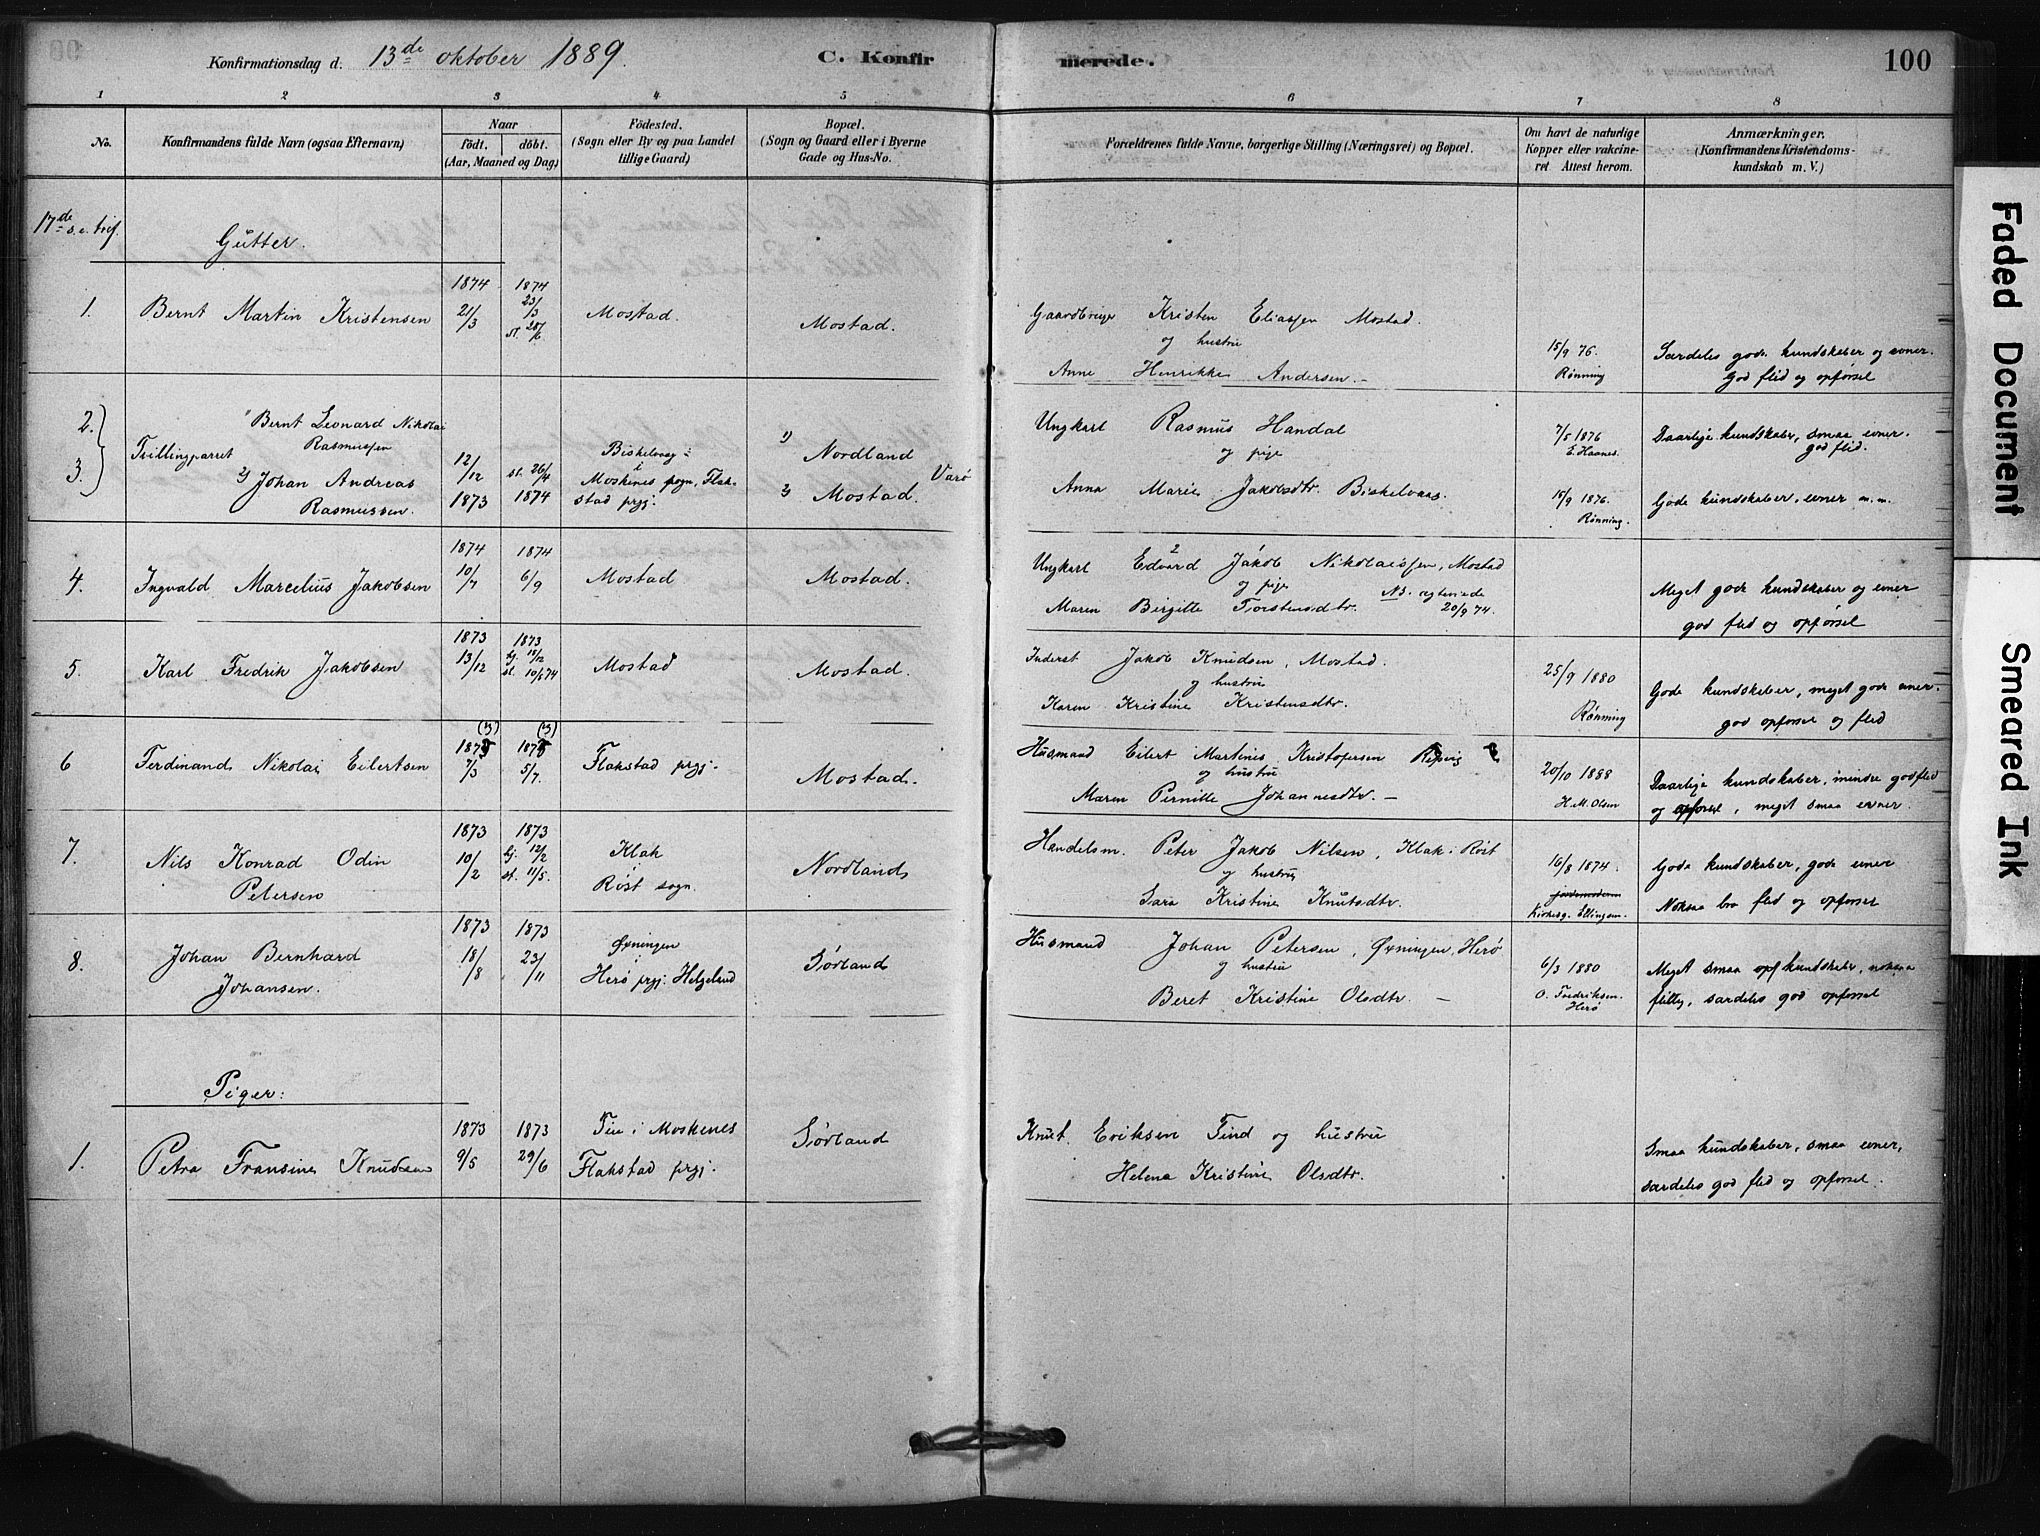 Konfirmationsdag d. 13de oktober 1889.
C. Konfirmerede.
100
1 2 3 4 5 6 7 8
No.
Konfirmandens fulde Navn (ogsaa Efternavn)
Naar
födt. döbt.
(Aar, Maaned og Dag)
Födested.
(Sogn eller By og paa Landet
tillige Gaard)
Bopæl.
(Sogn og Gaard eller i Byerne
Gade og Hus-No.
Forældrenes fulde Navne, borgerlige Stilling (Næringsvei) og Bopæl.
Om havt de naturlige
Kopper eller vakcine-
ret Attest herom.
Anmærkninger.
(Konfirmandens Kristendoms-
kundskab m. V.)
17de s. e. tref.
Gutter.
1. Bernt Martin Kristensen
1874 21/3
1874 23/3 st. 28/6
Mostad.
Mostad.
Gaardbruger Kristen Eliassen Mostad.
og hustru
Anne Henrikke Andersen.
15/9 76.
Rønning
Særdeles gode kundskaber og evner.
God flid og opførsel
2. 3.
Tvillingparret
1) Bernt Leonard Nikolai
Rasmussen
2) Johan Andreas
Rasmussen.
12/12 1873
st. 26/4 1874
Moskenes sogn, Flak-
stad prgj.
1) Nordland
2) Mostad.
Værø
Ungkarl Rasmus Handal
og pige
Anna Marie Jakobsdtr.
7/5 1876
E. Haanes.
Daarlige kundskaber, smaa evner.
god flid.
15/9 1876.
Rønning.
Gode kundskaber, evner m. m.
4. Ingvald Marcelius Jakobsen
1874 10/7
1874 6/9
Mostad
Mostad.
Ungkarl Edvard Jakob Nikolaissen, Mostad
og pige
Maren Birgitte Torstensdtr.
NB. egteviede
20/9 74.
Meget gode kundskaber og evner
god flid og opførsel
5. Karl Fredrik Jakobsen
1873 13/12
1873 hj. 18/12 st. 10/6 74
Mostad
Mostad.
Inderst Jakob Knudsen, Mostad.
og hustru
Karen Kristine Kristensdtr.
25/9 1880
Rønning
Gode kundskaber, meget gode evner.
god opførsel og flid
6 Ferdinand Nikolai Eilertsen
(3) 1875 7/3
(3) 1875 5/7.
Flakstad prgj.
Mostad.
Husmand Eilert Martinus Kristofersen
og hustru
Maren Pernille Johannesdtr. —
20/10 1888
H. M. Olsen
Daarlige kundskaber, mindre god flid
og opførsel, meget smaa evner.
7. Nils Konrad Odin
Petersen
1873 10/2
1873 hj. 12/2 st. 11/5.
Klak
i
Røst sogn.
Nordland
Handelsm. Peter Jakob Nilsen, Klak i Røst
og hustru
Sara Kristine Knutsdtr.
16/8 1874
Kirkesg. Ellingsen.
Gode kundskaber, gode evner
Noksaa bra flid og opførsel
8. Johan Bernhard
Johansen.
1873 18/8
1873 23/11
Øxningen
i
Herø prgj. Helgeland
Sørland
Husmand Johan Petersen, Øxningen, Herø
og hustru
Beret Kristine Olsdtr. —
6/3 1880
O. Fredriksen.
Herø
Meget smaa kundskaber, noksaa
flittig, særdeles god opførsel
Piger:
1. Petra Fransine Knudsen
1873 9/5
1873 29/6
Tin i Moskenes
Flakstad prgj.
Sørland
Knut Eriksen Tind og hustru
Helena Kristine Olsdtr.
Smaa kundskaber, smaa evner,
særdeles god flid og opførsel.
Faded Document
Smeared Ink